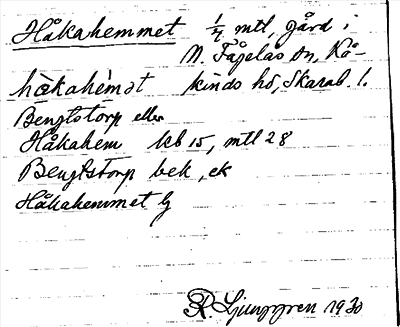 Håkahemmet 1/4 mtl, gård i
N. Fågelås sn, Kå-
hò̀kahèmət kinds hd, Skarab. l.
Bengtstorp eller
Håkahem kb 15, mtl 28
Bengtstorp bek, ek
Håkahemmet
R. Ljunggren 1930